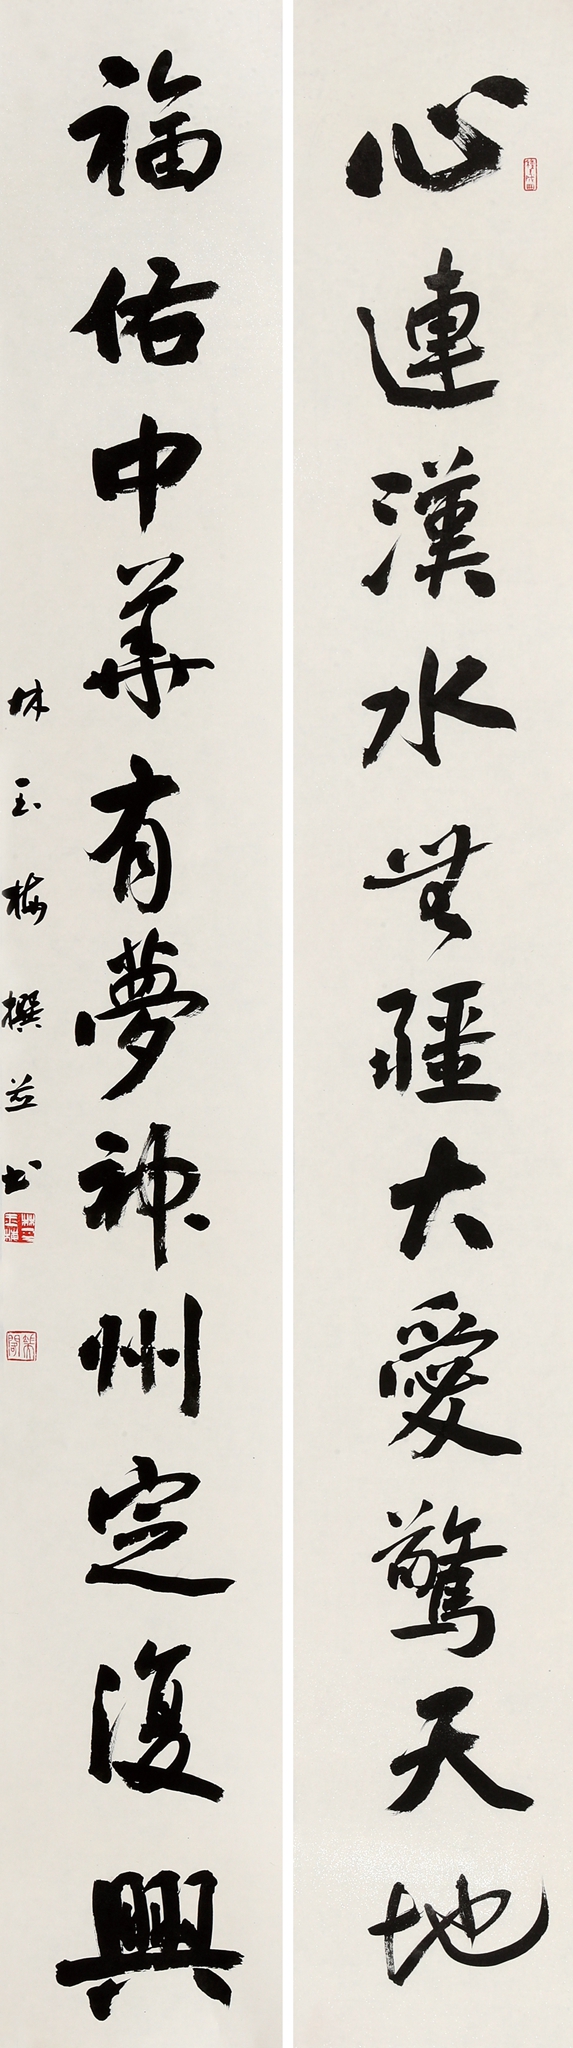 心連漢水無疆大愛驚天地
福佑中華有夢神州定復興
林玉梅撰並書